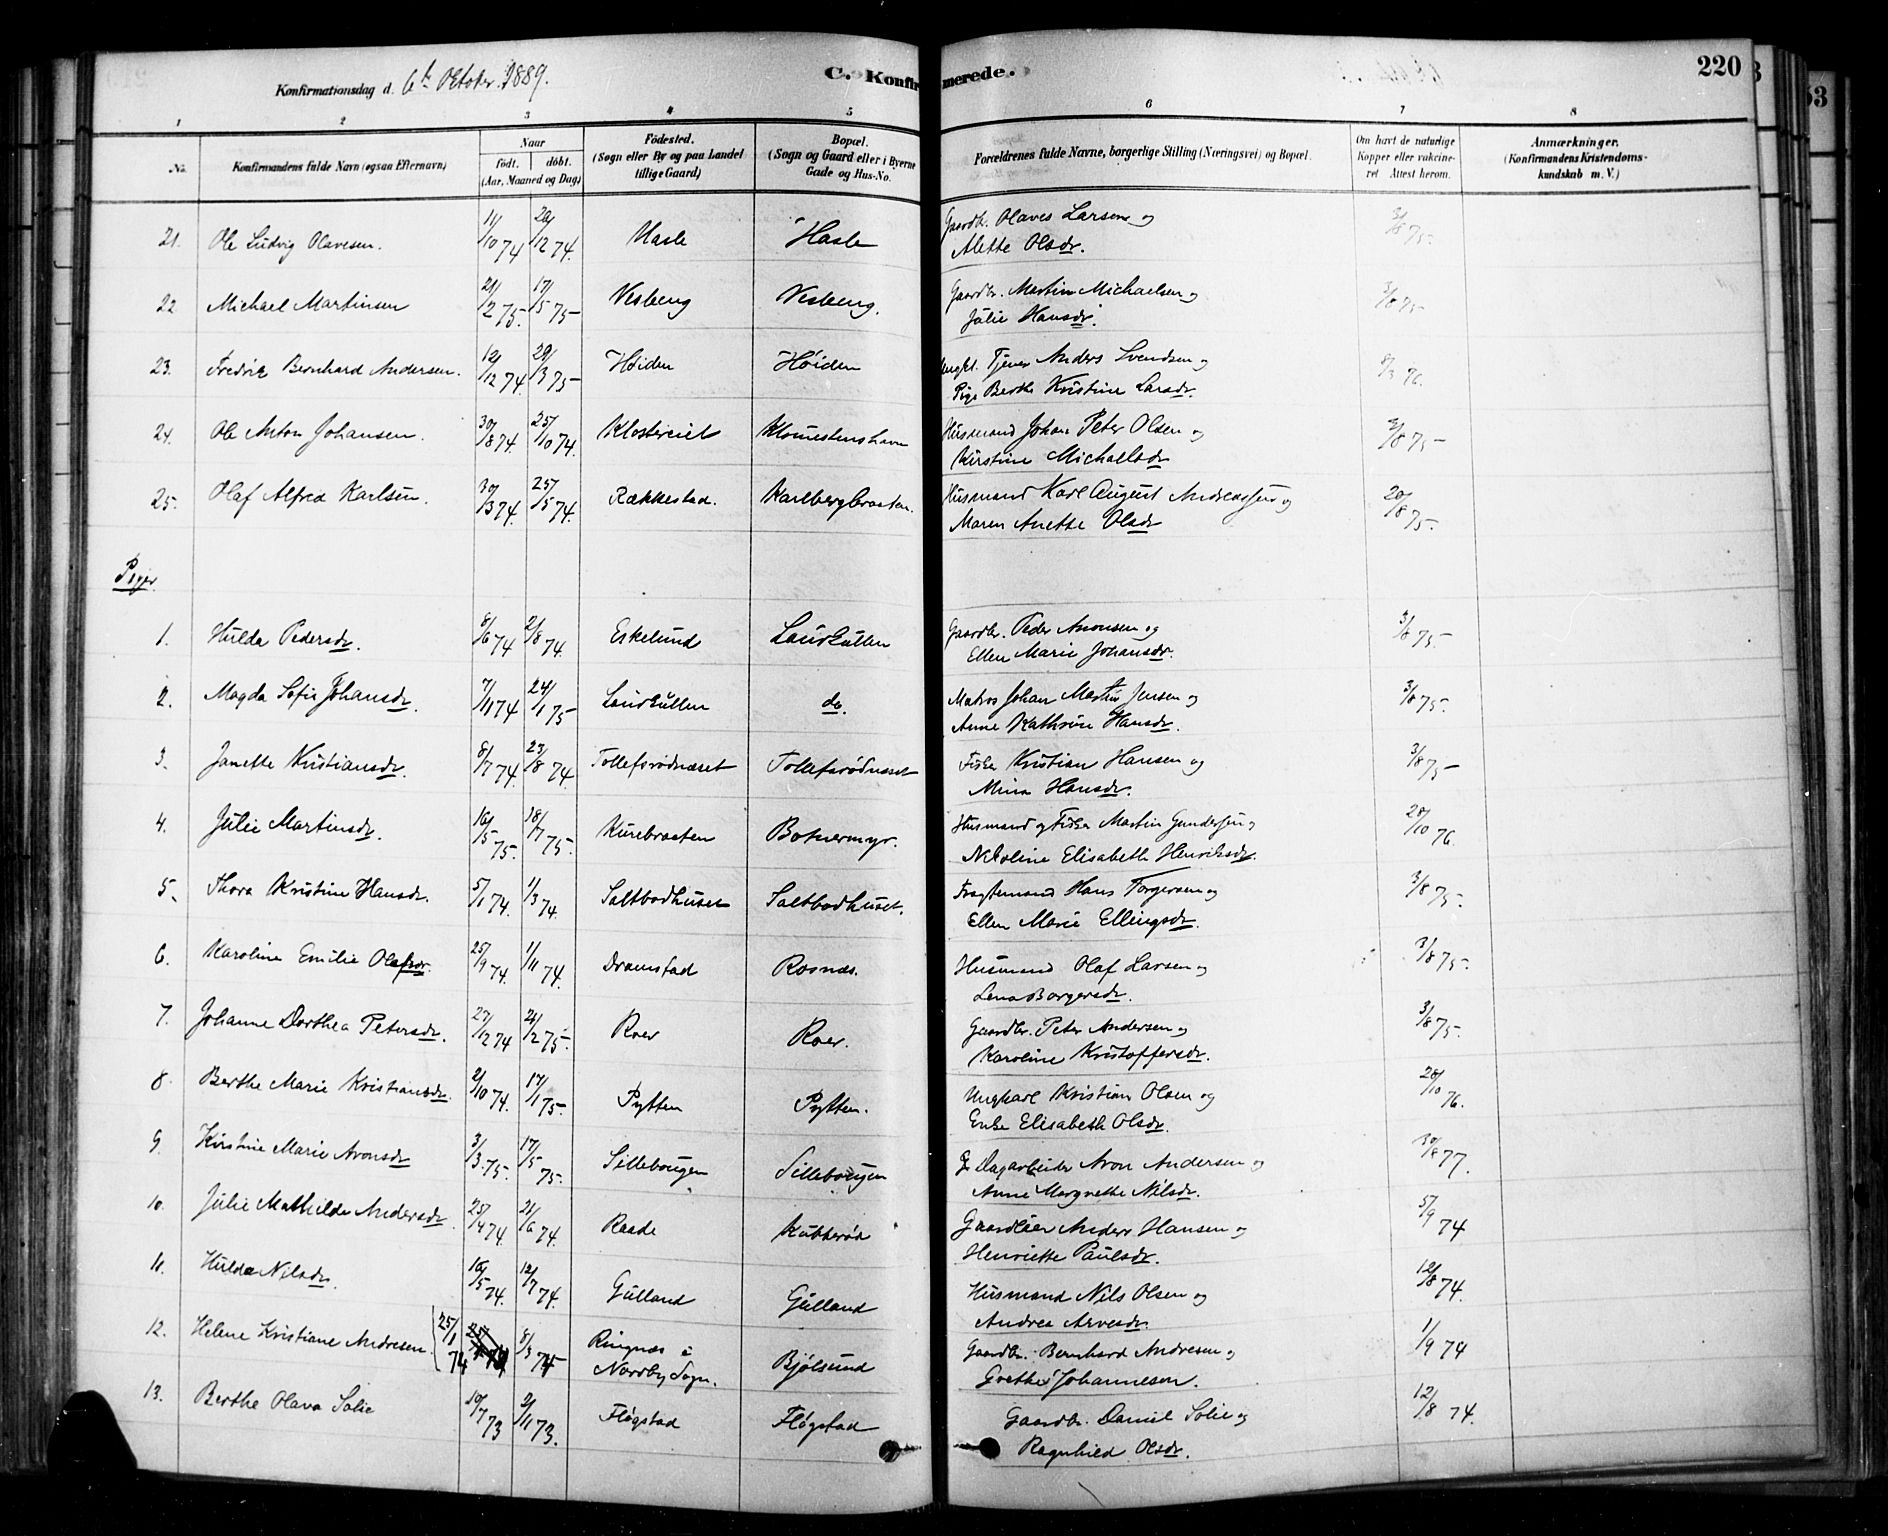 C. Konfirmerede.
220
Konfirmationsdag d. 6te Oktober 1889.
1 2 3 4 5 6 7 8
No. Konfirmandens fulde Navn (ogsaa Efternavn) Naar født. døbt. (Aar, Maaned og Dag) Fødested. (Sogn eller By og paa Landet tillige Gaard) Bopæl. (Sogn og Gaard eller i Byerne Gade og Hus-No. Forældrenes fulde Navne, borgerlige Stilling (Næringsvei) og Bopæl. Om havt de naturlige Kopper eller vakcineret Attest herom. Anmærkninger. (Konfirmandens Kristendomskundskab m. V.)
21. Ole Ludvig Olavesen. 1/10 74 20/12 74. Hasle Hasle Gaardbr. Olaves Larsen og 3/8 75.
Alette Olsdr.
22 Michael Martinsen 21/2 75. 17/5 75 Vesberg Vesberg. Gaardbr. Martin Michaelsen og 3/8 75
Julie Hansdr.
23. Fredrik Bernhard Andersen. 12/12 74. 29/3 75 Høiden Høiden Ungk. Tjener Anders Svendsen og 8/3 76.
Pige Berthe Kristine Larsdr.
24. Ole Anton Johansen. 30/8 74. 25/10 74. Husmand Johan Peter Olsen og 3/8 75
Kirstine Michaelsdr
25. Olaf Alfred Karlsen. 30/3 74. 25/5 74. Rækkestad. Karlbergbraaten. Husmand Karl August Andreassen og 20/8 75.
Maren Anette Olsdr
Piger
1. Hulda Pedersdr. 8/6 74 2/8 74. Eskelund Laurkullen Gaardbr. Peder Aronsen og 3/8 75.
Ellen Marie Johansdr.
2. Magda Sofie Johansdr. 7/11 74 24/1 75 Laurkullen do. Matros Johan Martin Jensen og 3/8 75.
Anne Kathrine Hansdr.
3. Janette Kristiansdr. 8/7 74. 23/8 74 Tollefsrødnæset Tollefsrødnæset Fisker Kristian Hansen og 3/8 75
Mina Hansdr.
4. Julie Martinsdr. 16/5 75. 18/7 75. Kurebraaten Botnermyr. Husmand og Fisker Martin Gundersen og 20/10 76.
Nikoline Elisabeth Henriksdr.
5. Thora Kristine Hansdr. 5/1 74. 1/3 74. Saltbodhuset Saltbodhuset. Hans Torgersen og 3/8 75.
Ellen Marie Ellingsdr.
6. Karoline Emilie Olafsdr. 25/9 74. 1/11 74. Dramstad Rosnæs. Husmand Olaf Larsen og 3/8 75.
Lena Borgersdr.
7. Johanne Dorthea Petersdr. 27/12 74 21/2 75. Roer Roer. Gaardbr. Peter Andersen og 3/8 75.
Karoline Kristoffersdr.
8. Berthe Marie Kristiansdr. 2/10 74. 17/1 75. Pytten Pytten. Ungkarl Kristian Olsen og 20/10 76.
Enke Elisabeth Olsdr.
9. Kirstine Marie Aronsdr 3/3 75. 17/5 75. Sillebougen Sillebougen Dagarbeider Aron Andersen og 30/8 77.
Anne Margrethe Nilsdr.
10. Julie Mathilde Andersdr. 25/4 74 21/6 74. Raade Kubberød Gaardbruger Anders Hansen og 5/9 74
Henriette Paulsdr.
11. Hulda Nilsdr. 16/5 74. 12/7 74. Gulland Gulland Husmand Nils Olsen og 12/8 74.
Andrea Arvesdr.
12. Helene Kristiane Andresen. 25/1 74 8/3 74 Ringnæs i Nordby Sogn. Bjølsund Gaardbr. Bernhard Andresen og 1/9 74
Grethe Johannesen.
13. Berthe Olava Solie 10/7 73 2/11 73. Fløgstad Fløgstad Gaardbr. Daniel Solie og 12/8 74.
Ragnhild Olsdr.